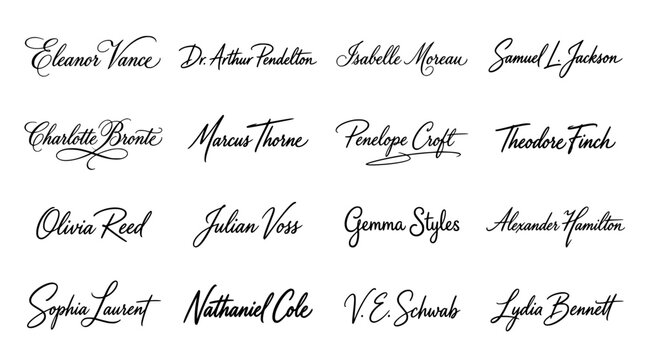 Eleanor Vance Dr. Arthur Pendelton Isabelle Moreau Samuel L. Jackson
Charlotte Bronte Marcus Thorne Penelope Croft Theodore Finch
Olivia Reed Julian Voss Gemma Styles Alexander Hamilton
Sophia Laurent Nathaniel Cole V. E. Schwab Lydia Bennett